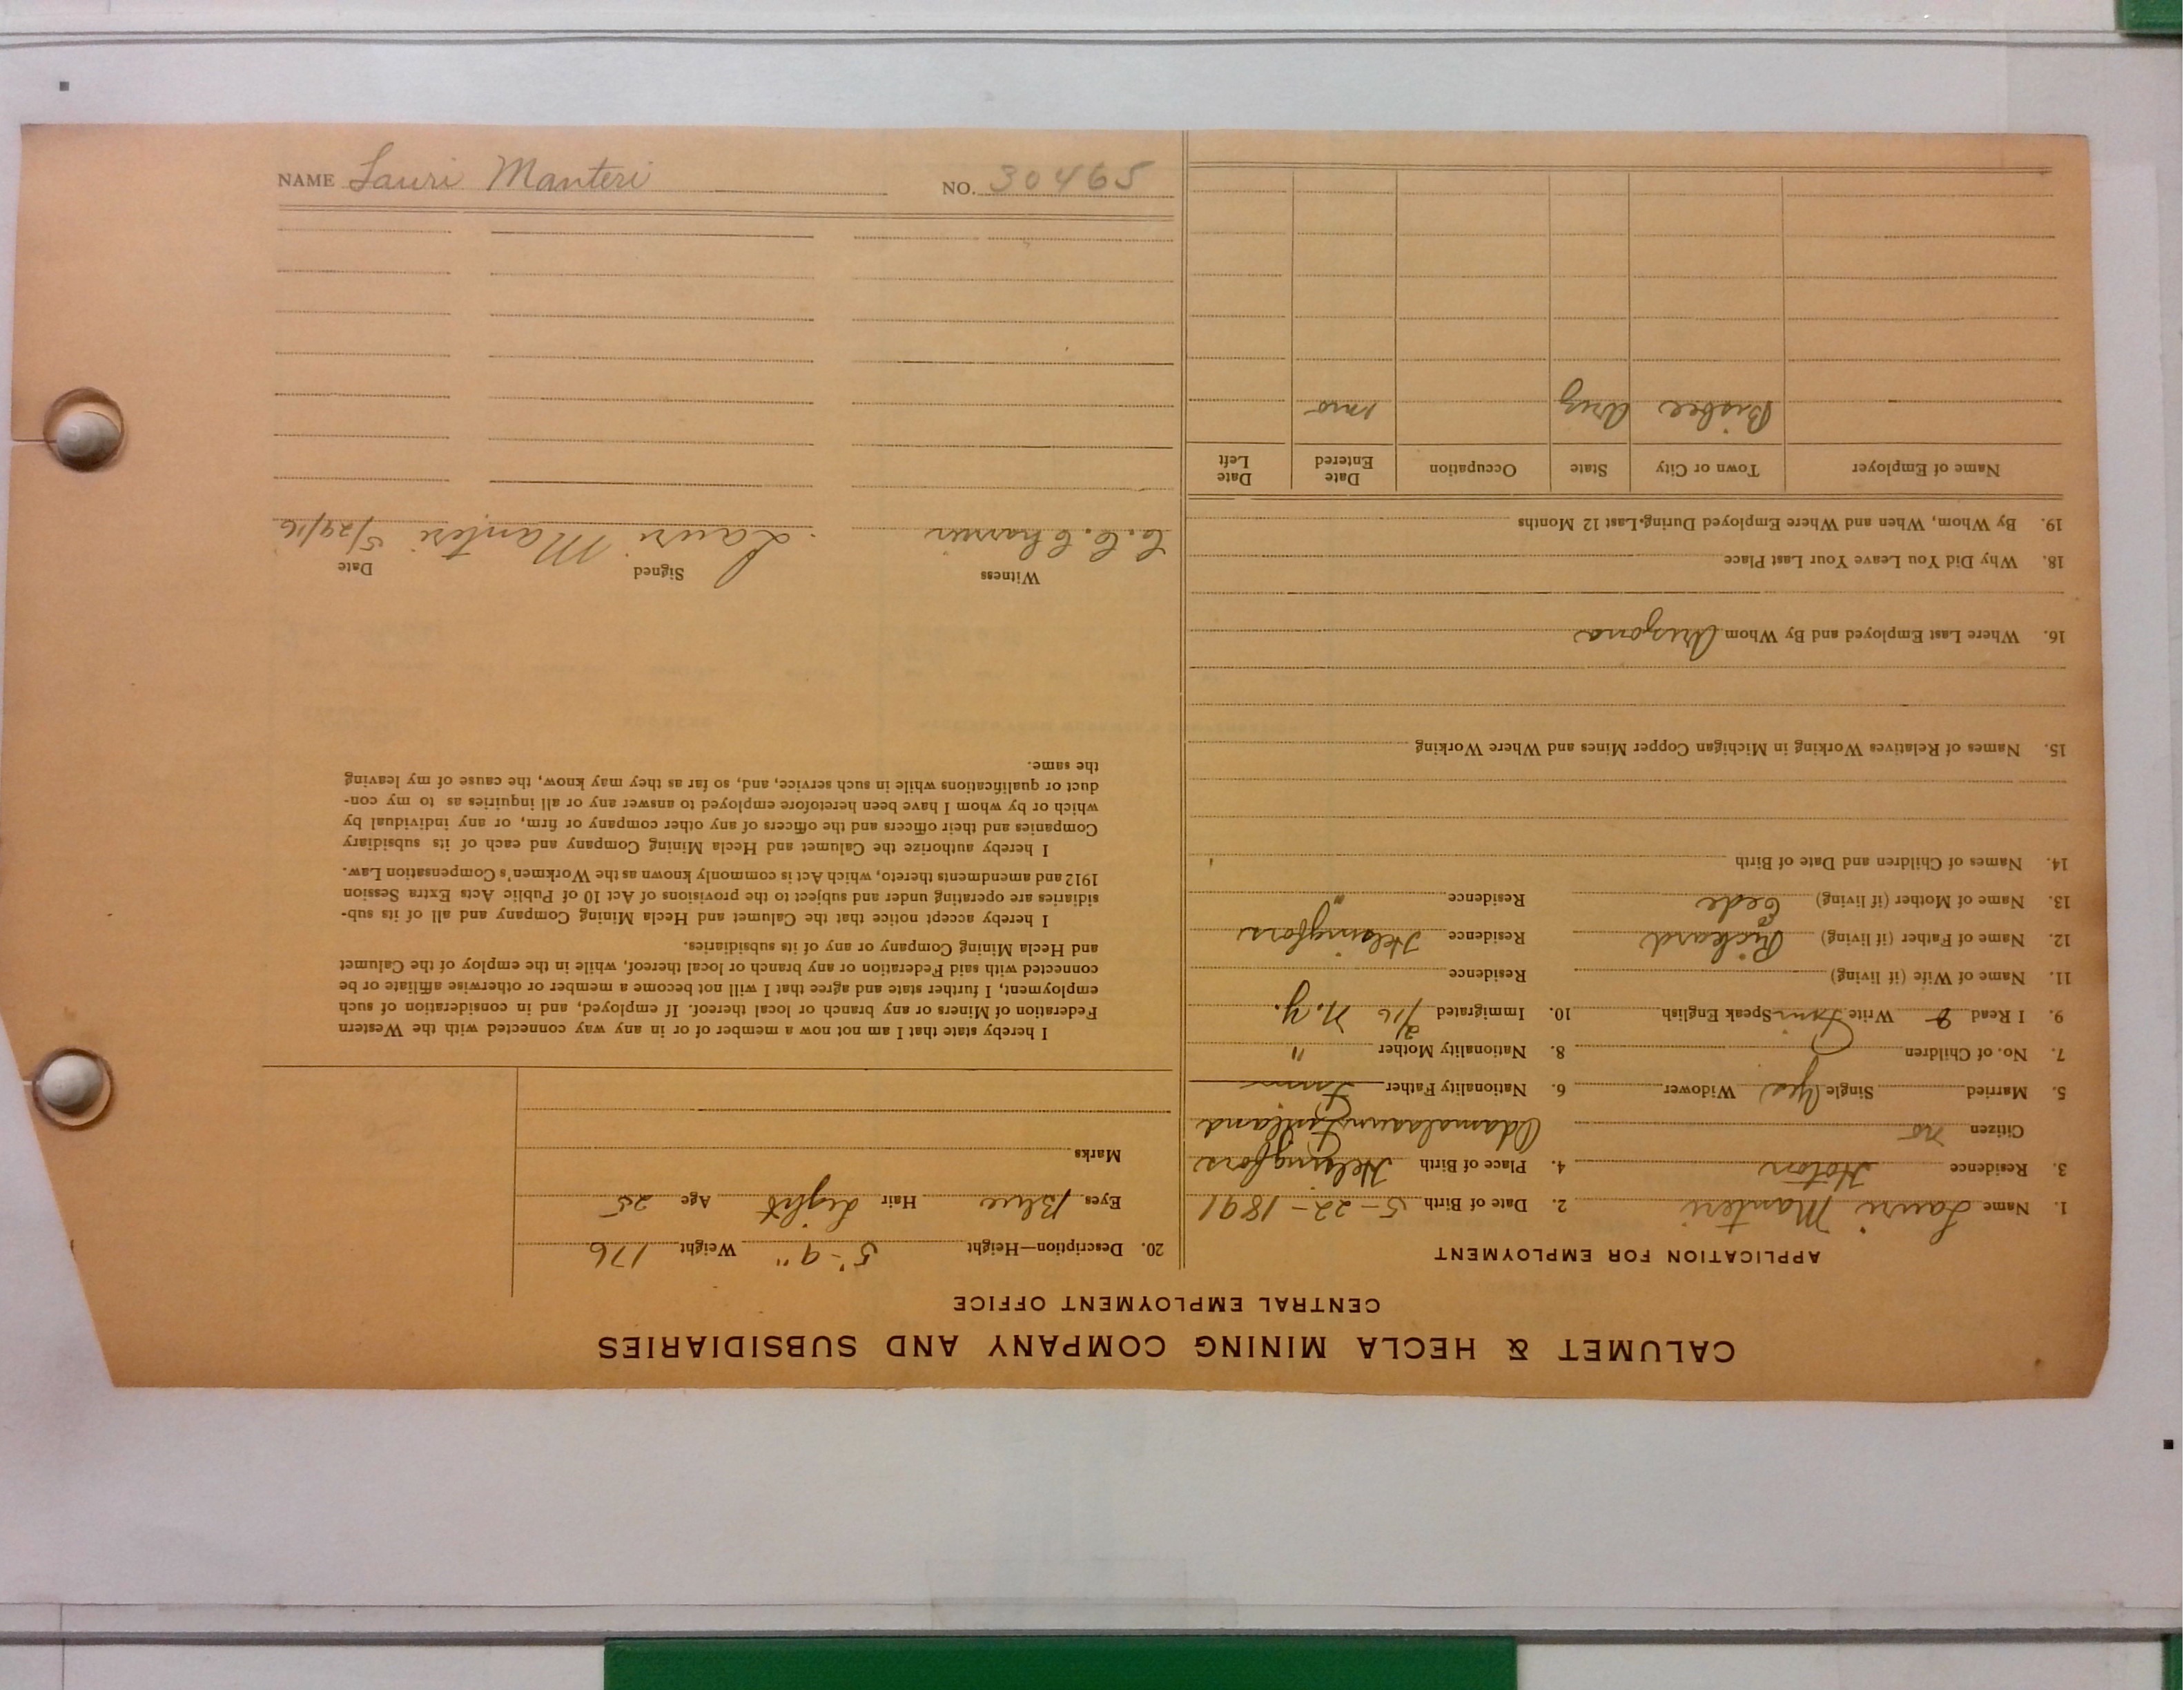 NAME Lauri Manteri NO. 30465
CALUMET & HECLA MINING COMPANY AND SUBSIDIARIES
CENTRAL EMPLOYMENT OFFICE
APPLICATION FOR EMPLOYMENT
1. Name Lauri Manteri 2. Date of Birth 5-22-1891
3. Residence Hotan 4. Place of Birth Helsingfors
Citizen no Finland
5. Married Single Yes Widower 6. Nationality Father Finn
7. No. of Children 8. Nationality Mother "
9. I Read & Write Finn Speak English 10. Immigrated 2/16 N.Y.
11. Name of Wife (if living) Residence
12. Name of Father (if living) Rickard Residence Helsingfors
13. Name of Mother (if living) Eede Residence "
14. Names of Children and Date of Birth
15. Names of Relatives Working in Michigan Copper Mines and Where Working
16. Where Last Employed and By Whom Arizona
18. Why Did You Leave Your Last Place
19. By Whom, When and Where Employed During Last 12 Months
Name of Employer Town or City State Occupation Date Entered Date Left
Bisbee Ariz 1 mo
20. Description—Height 5'-9" Weight 176
Eyes Blue Hair Light Age 25
Marks
I hereby state that I am not now a member of or in any way connected with the Western
Federation of Miners or any branch or local thereof. If employed, and in consideration of such
employment, I further state and agree that I will not become a member or otherwise affiliate or be
connected with said Federation or any branch or local thereof, while in the employ of the Calumet
and Hecla Mining Company or any of its subsidiaries.
I hereby accept notice that the Calumet and Hecla Mining Company and all of its sub-
sidiaries are operating under and subject to the provisions of Act 10 of Public Acts Extra Session
1912 and amendments thereto, which Act is commonly known as the Workmen's Compensation Law.
I hereby authorize the Calumet and Hecla Mining Company and each of its subsidiary
Companies and their officers and the officers of any other company or firm, or any individual by
which or by whom I have been heretofore employed to answer any or all inquiries as to my con-
duct or qualifications while in such service, and, so far as they may know, the cause of my leaving
the same.
Witness Signed Date
Lauri Manteri 5/24/16